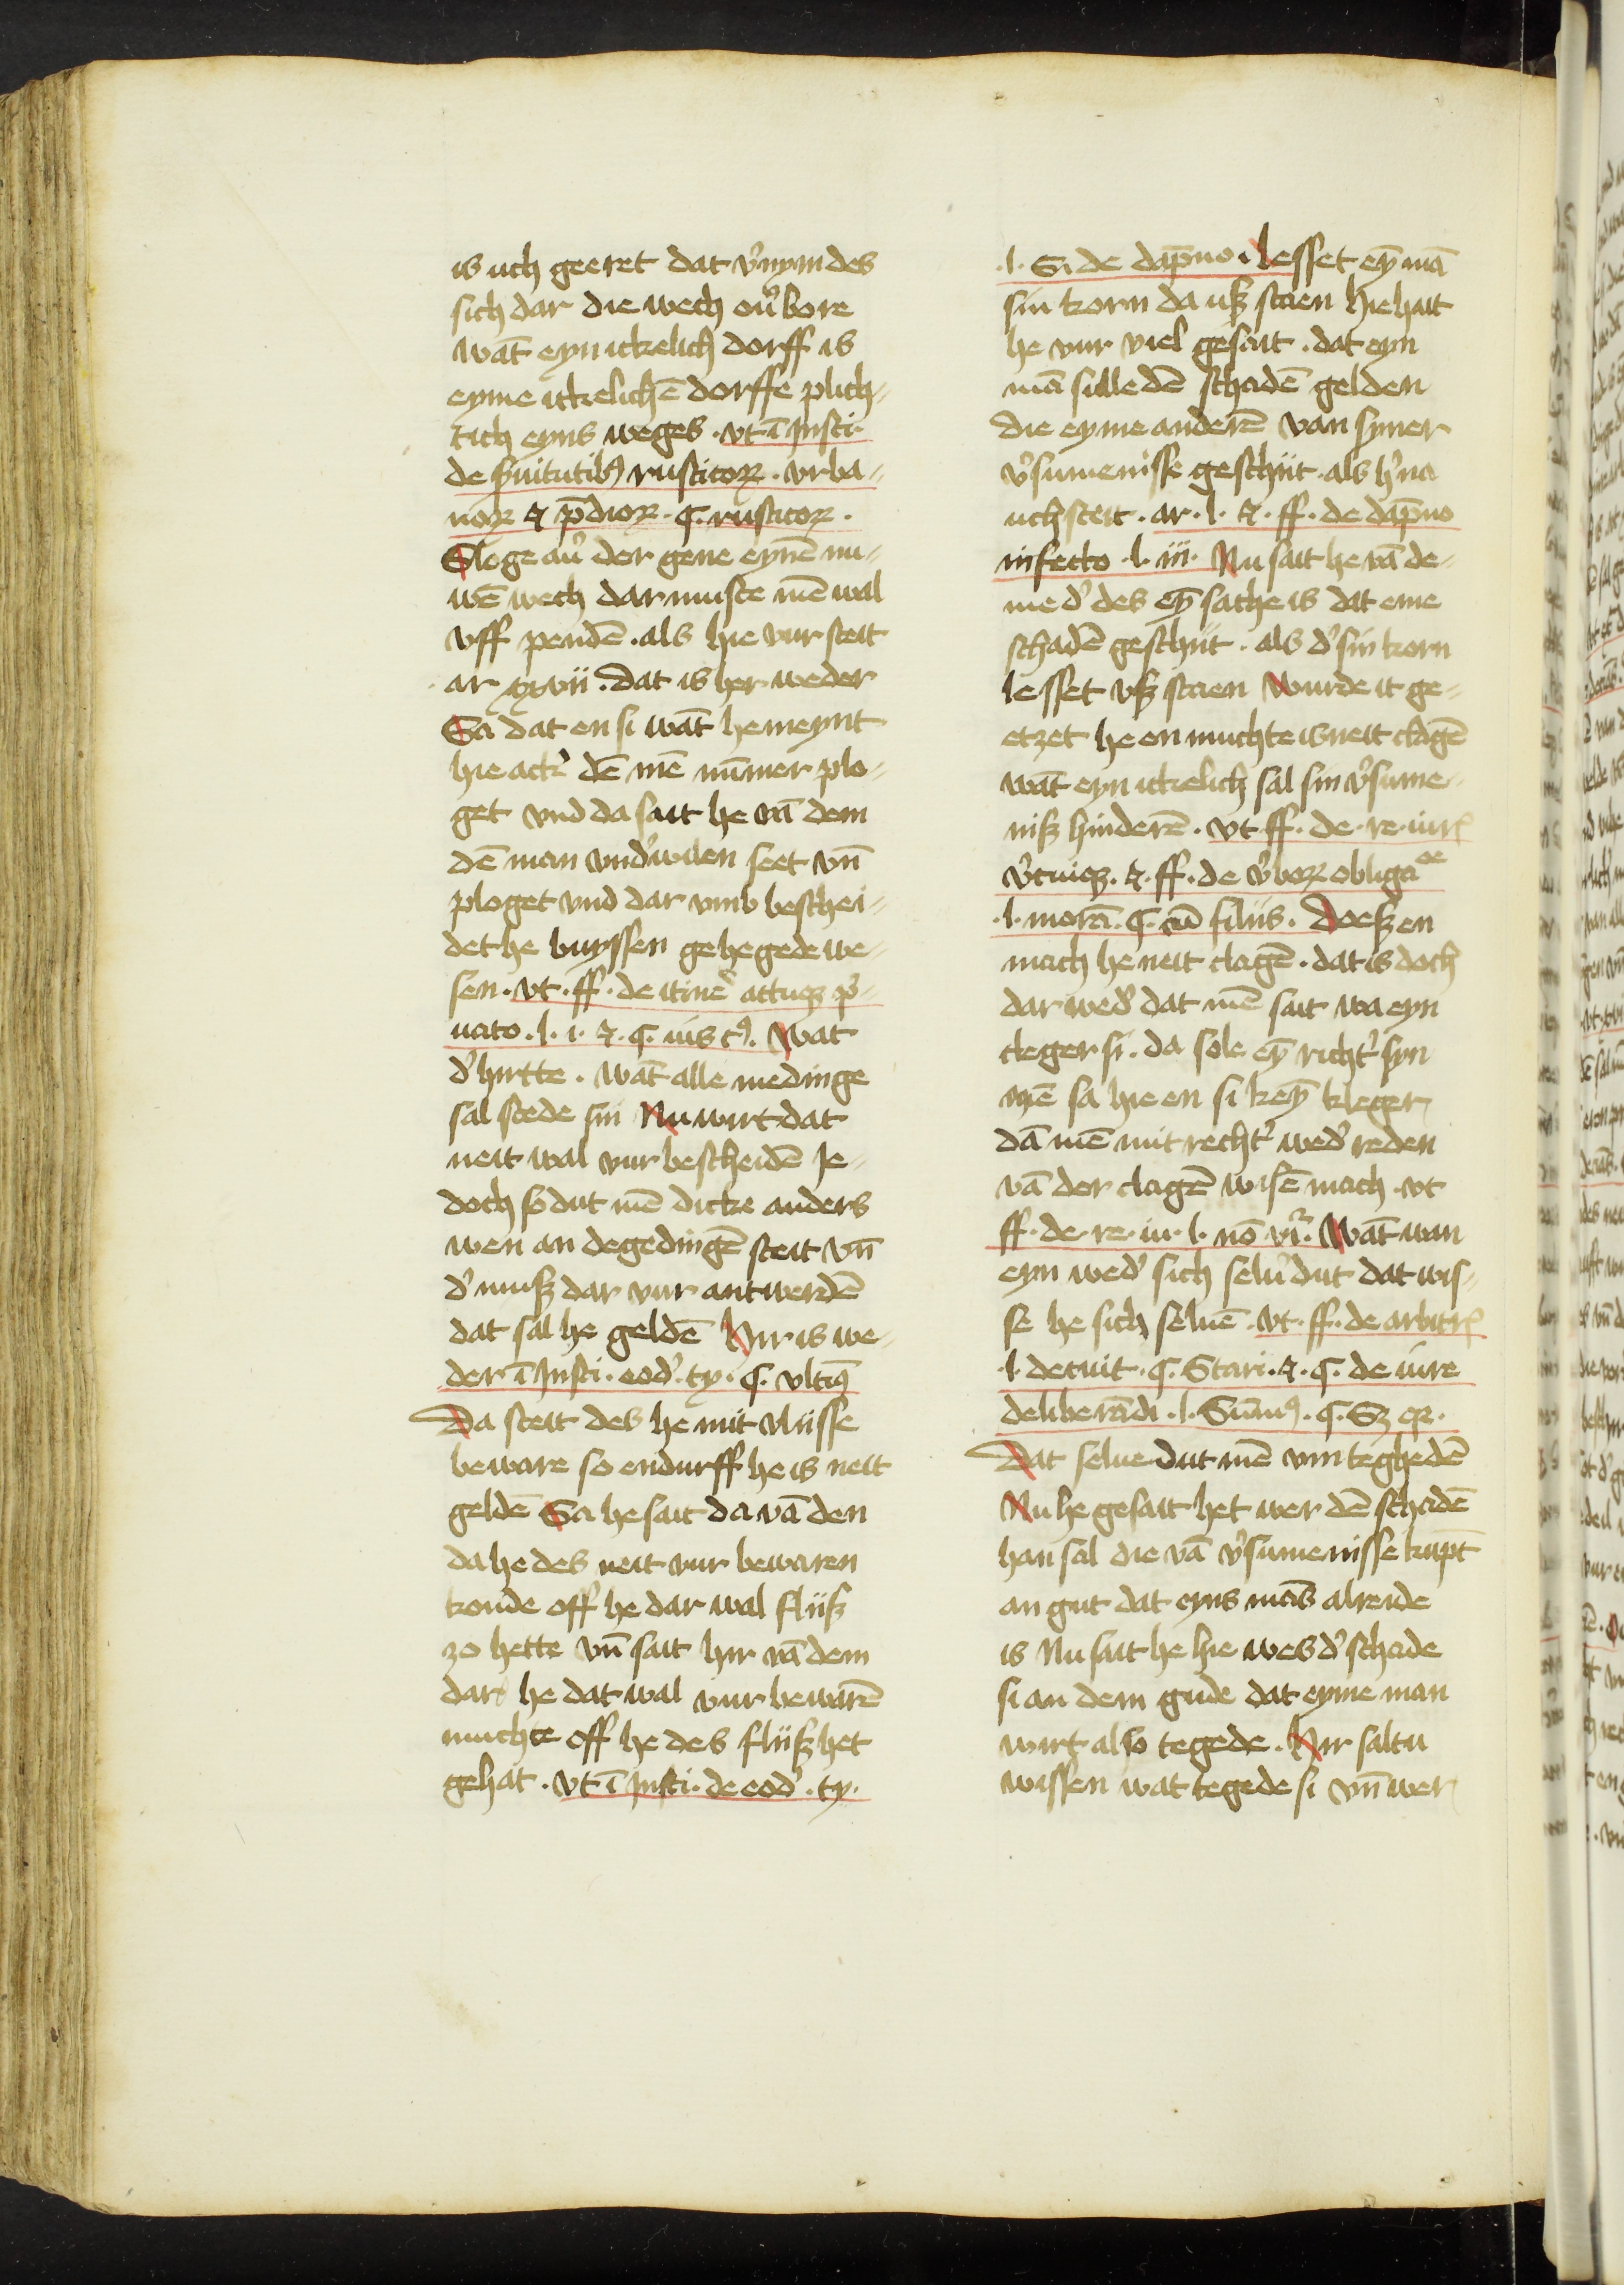 is uch geeret dat v͛nymdes
sich dar die wech ou͛bore
wāt eyn ickelich dorff is
eyme ickelichē dorffe plich-
tich eyns weges · vt ī Insti·
de s͛uitutibꝰ rusticoꝝ · vrba-
noꝝ ⁊ p̄dioꝝ · ꝯ. rusticoꝝ ·
Sloge au͛ der gene eynē nu-
wē wech dar muste mē wal
vff pendē · als hie vur steit
ar xxvii · dat is her weder
Sa dat en si wāt he meynt
hie ack͛ dē mē nūmer plo-
get vnd da sait he vā dem
dē man vnd͛wilen seet vn̄
ploget vnd dar vmb beschei-
det he buyssen gehegede we-
sen · vt · ff · de itine͛ actuqꝫ p͛-
uato · l · i · ⁊ · ꝯ. iiis tꝰ. Wat
d͛ hirtte · wāt alle medinge
sal stede sin Nu wirt dat
neit wal vur bescheidē Je-
doch so dut mē dicke anders
wen an degedingē steit vn̄
d͛ muß dar vur antwerdē
dat sal he geldē Hir is we-
der ī Insti · eod͛ · ty · ꝯ. vltīꝰ
Da steit des he mit vliisse
beware so endurff he is neit
geldē Sa he sait da vā den
da he des neit vur bewaren
konde off he dar wal fliiß
zo hette vn̄ sait hir vā dem
dar he dat wal vur bewarē
muchte off he des fliiß het
gehat · vt ī Insti · de eod͛ · ty ·
· l · Si de dap̄no · Lesset eȳ mā
sin korn da uß staen hie hait
he vur viel gesait · dat eyn
mā sulle dē schadē gelden
die eyme anderē van syner
v͛sumenisse geschiit · als h͛na
uch steit · ar · l · ⁊ · ff · de dap̄no
infecto · l · iii · Nu sait he vā de-
me d͛ des eȳ sache is dat eme
schadē geschiit · als d͛ sin korn
lesset vß staen Wurde it ge-
etzet he en muchte is neit clagē
wāt eyn ickelich sal sin v͛sume-
niß hinderē · vt · ff · de · re · iur͛
v͛tuiqꝫ · ⁊ · ff · de v͛boꝝ obliga oe
· l · morā · ꝯ. cū filiis · Doeß en
mach he neit clagē · dat is doch
dar wed͛ dat mē sait wa eyn
cleger si · da sole eȳ richt͛ syn
mē sa hie en si keȳ kleger
dā mē mit recht͛ wed͛ reden
vā der clagē wisē mach · vt
ff · de · re · iu · l · nō vr͛ · Wāt wan
eyn wed͛ sich selu͛ dut dat wis-
se he sich seluē · vt · ff · de arbitr͛
· l · detuit · ꝯ. Stari · ⁊ · ꝯ. de iure
deliberādi · l · Sūmꝰ · ꝯ. Sꝫ qꝛ ·
Dat selue dut mē vm teghedē
Nu he gesait het wer dē schadē
han sal die vā v͛sumenisse kūpt
an gut dat eyns mās alreide
is Nu sait he hie wes d͛ schade
si an dem gude dat eyme man
wirt also tegede · Hir saltu
wissen wat tegede si vn̄ wer